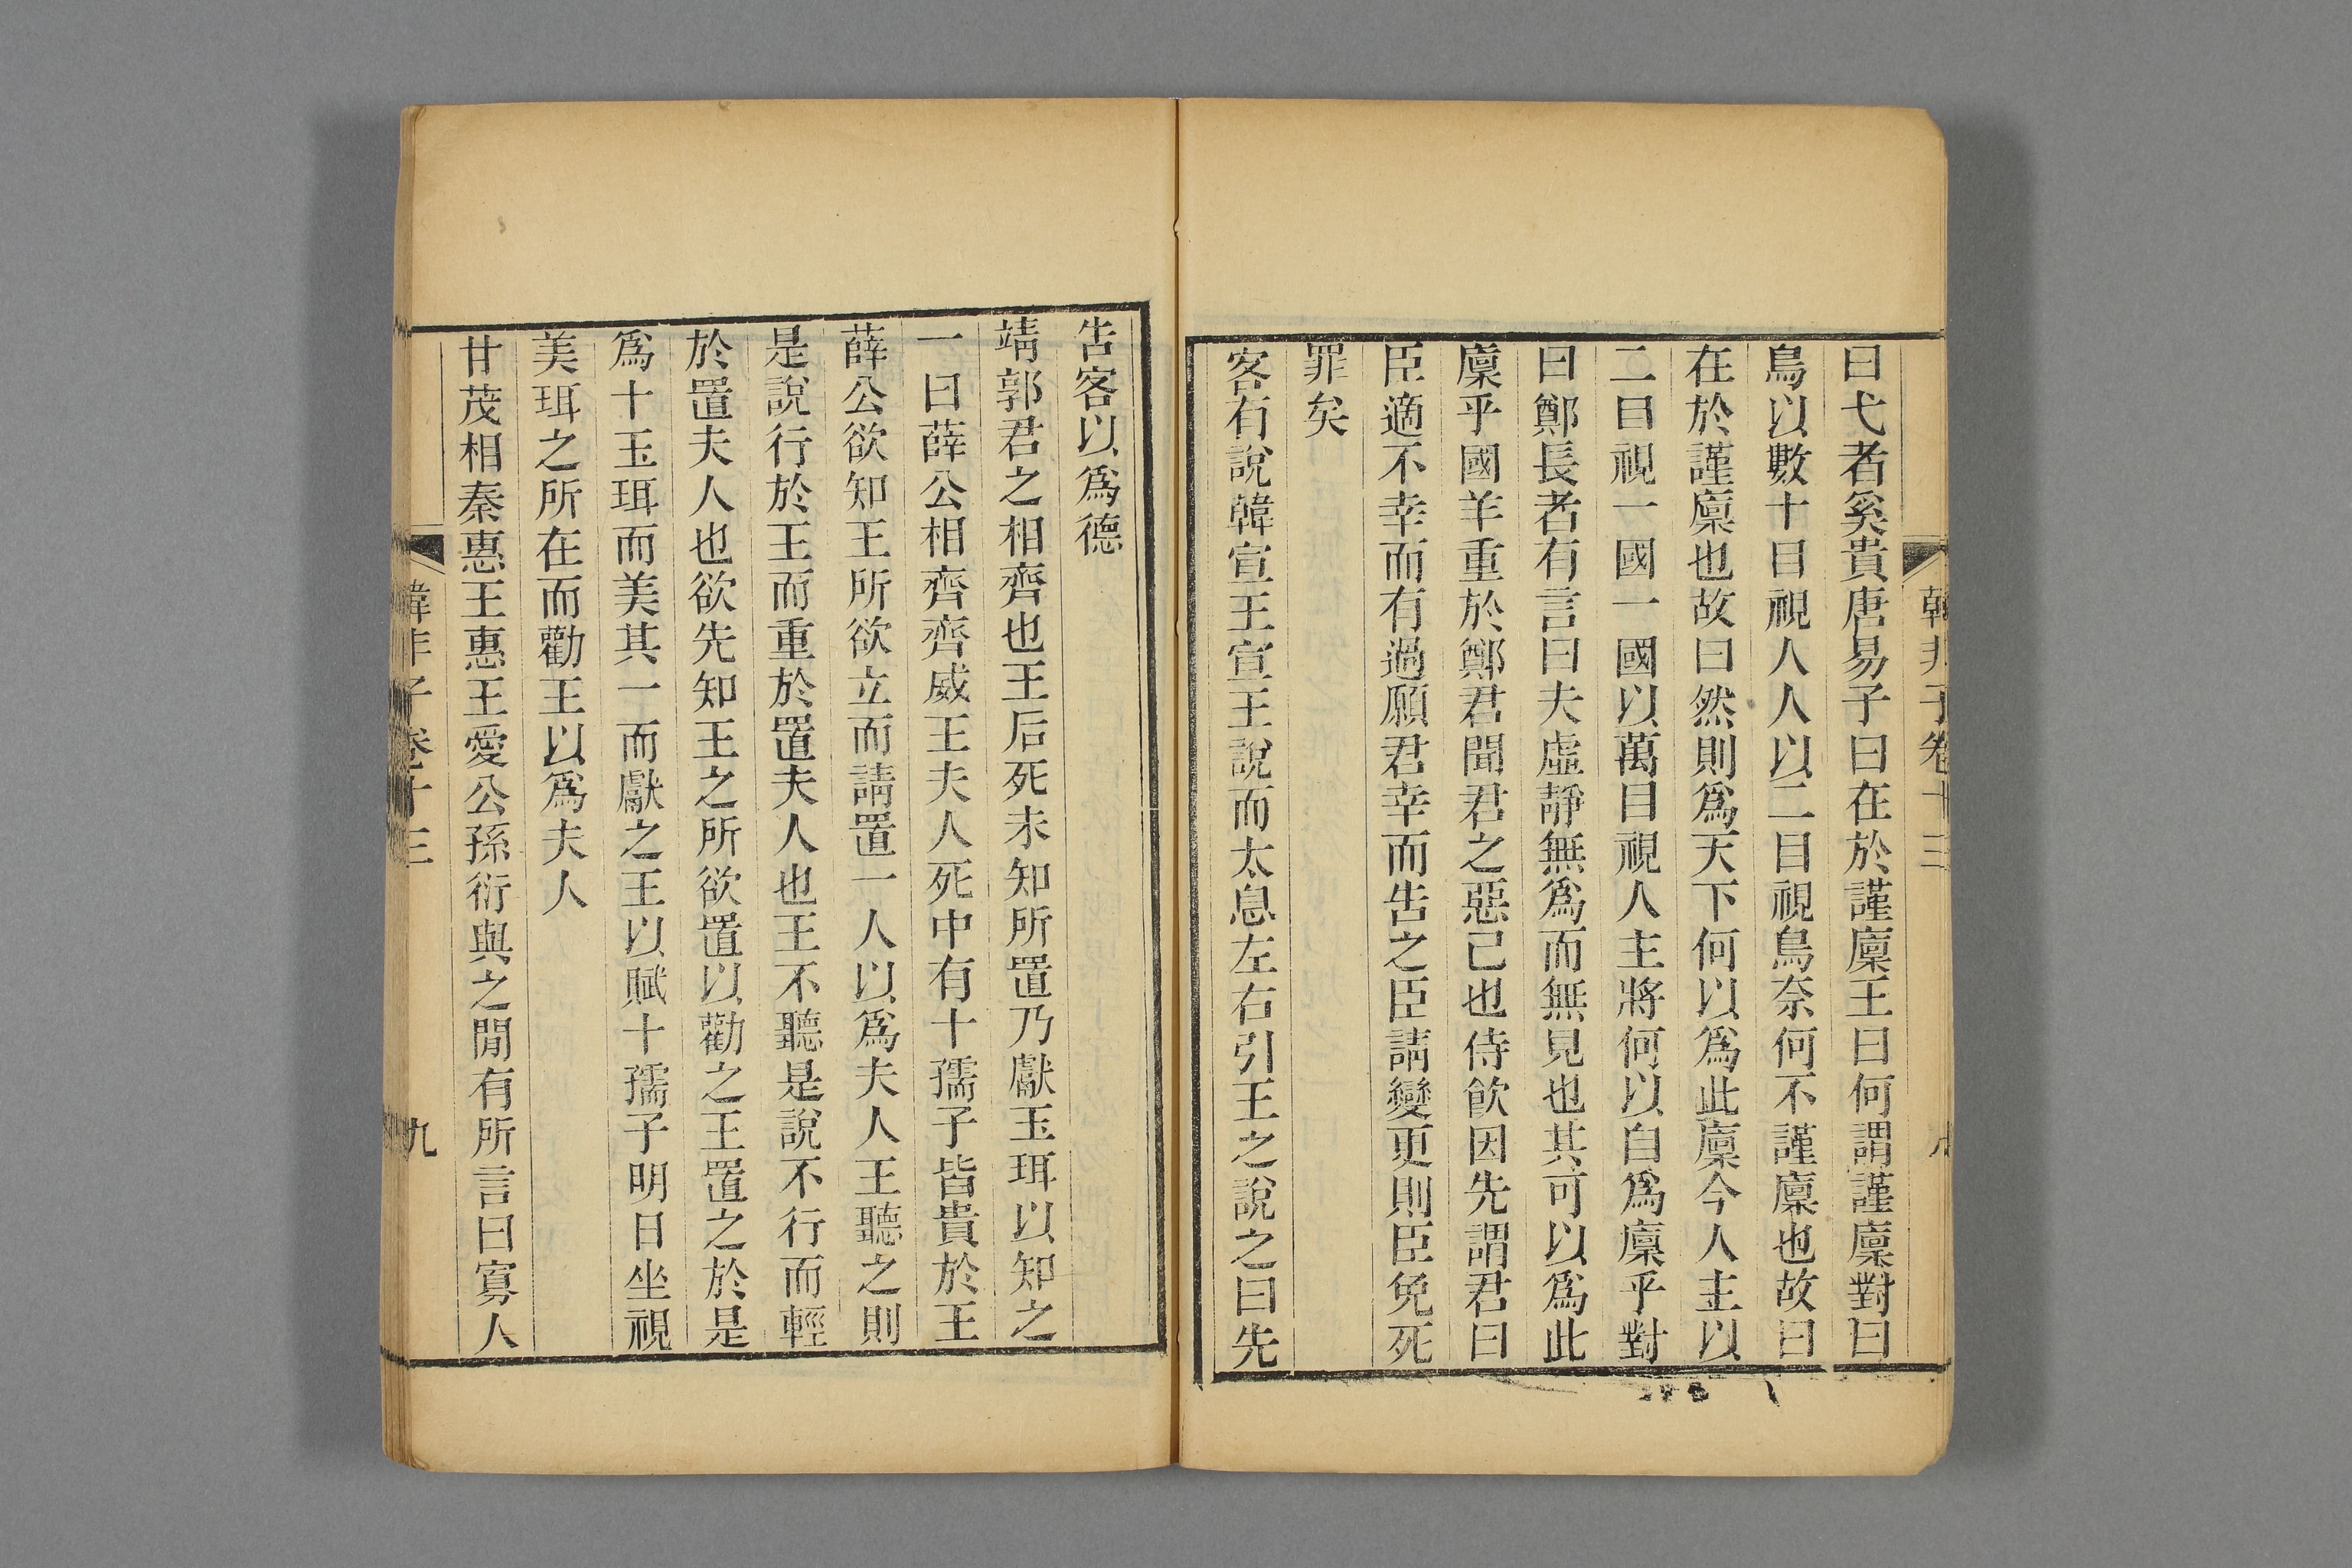 韓非子卷十三
曰弋者奚貴唐易子曰在於謹廩王曰何謂謹廩對曰
鳥以數十目視人人以二目視鳥奈何不謹廩也故曰
在於謹廩也故曰然則爲天下何以爲此廩今人主以
二目視一國一國以萬目視人主將何以自爲廩乎對
曰鄭長者有言曰夫虛靜無爲而無見也其可以爲此
廩乎國羊重於鄭君聞君之惡己也侍飮因先謂君曰
臣適不幸而有過願君幸而告之臣請變更則臣免死
罪矣
客有說韓宣王宣王說而太息左右引王之說之曰先
告客以爲德
靖郭君之相齊也王后死未知所置乃獻玉珥以知之
一曰薛公相齊齊威王夫人死中有十孺子皆貴於王
薛公欲知王所欲立而請置一人以爲夫人王聽之則
是說行於王而重於置夫人也王不聽是說不行而輕
於置夫人也欲先知王之所欲置以勸之王置之於是
爲十玉珥而美其一而獻之王以賦十孺子明日坐視
美珥之所在而勸王以爲夫人
甘茂相秦惠王惠王愛公孫衍與之閒有所言曰寡人
韓非子卷十三
九